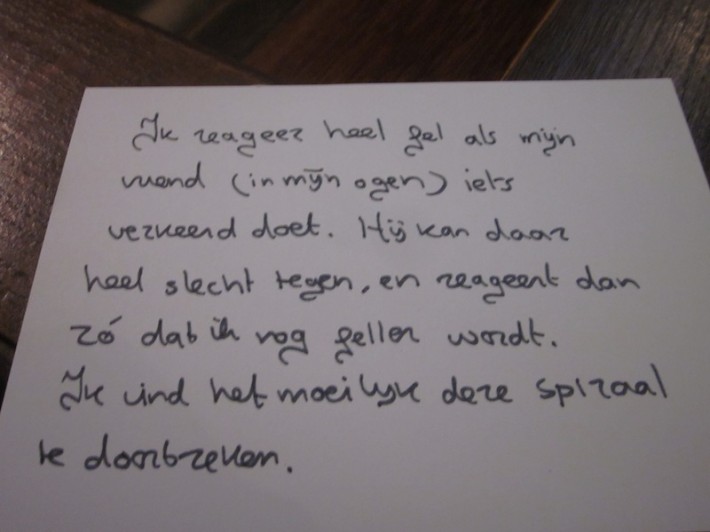 Ik reageer heel fel als mijn
vriend (in mijn ogen) iets
verkeerd doet. Hij kan daar
heel slecht tegen, en reageert dan
zó dat ik nog feller wordt.
Ik vind het moeilijk deze spiraal
te doorbreken.